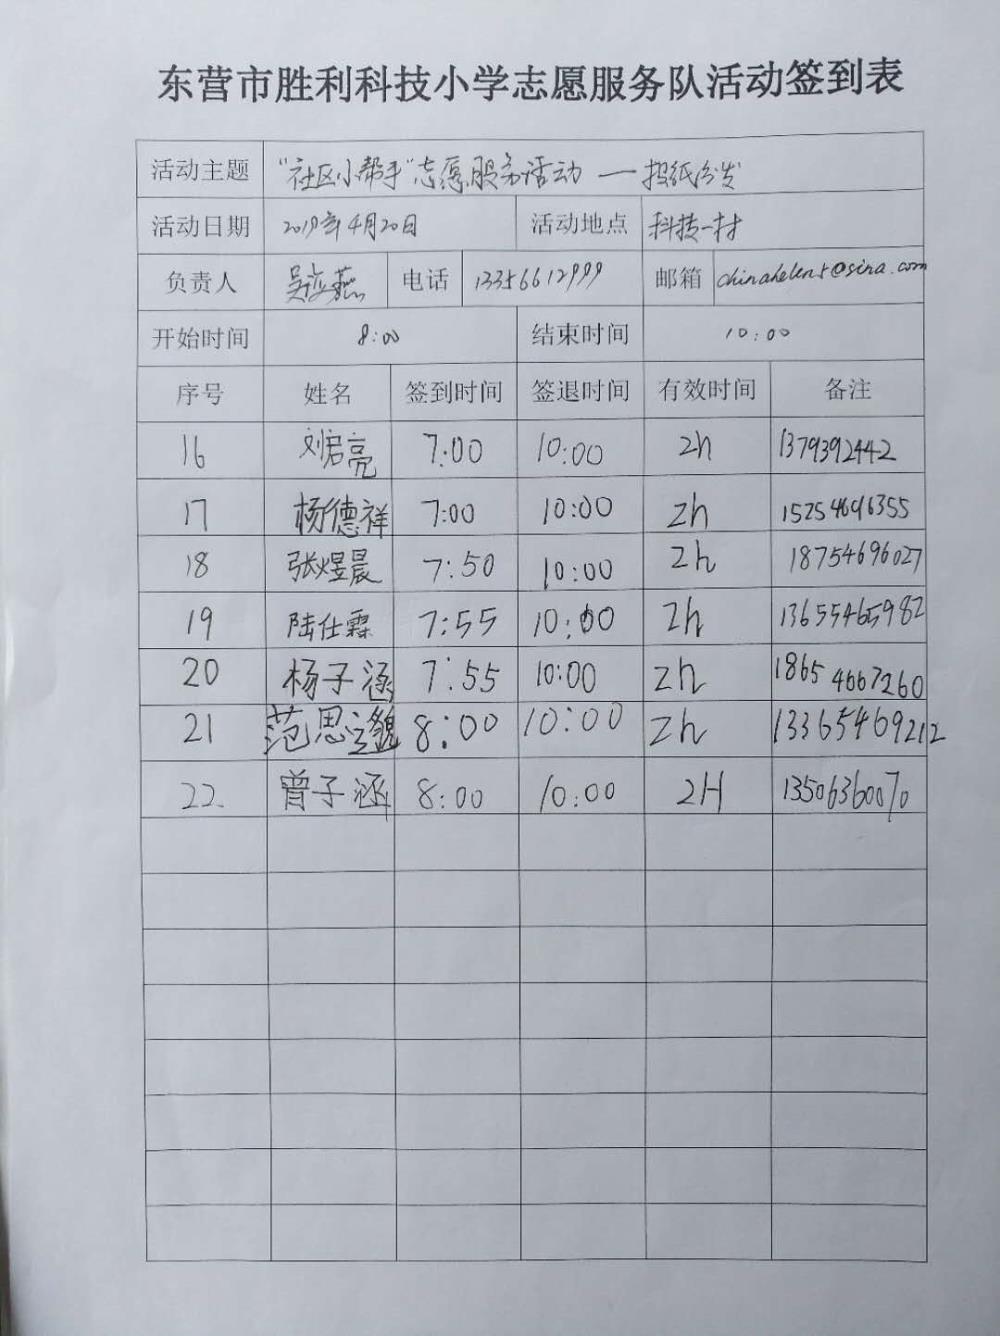 东营市胜利科技小学志愿服务队活动签到表
活动主题 "社区小帮手"志愿服务活动 — 报纸分发
活动日期 2019年4月20日 活动地点 科技一村
负责人 电话 13356612999 邮箱 chinahelen5@sina.com
开始时间 8:00 结束时间 10:00
序号 姓名 签到时间 签退时间 有效时间 备注
16 刘启亮 7:00 10:00 2h 1379392442
17 杨德祥 7:00 10:00 2h 15254696355
18 张煜晨 7:50 10:00 2h 18754696027
19 陆仕霖 7:55 10:00 2h 13655465982
20 杨子涵 7:55 10:00 2h 1865 4667260
21 范思邈 8:00 10:00 2h 13365469212
22. 曾子涵 8:00 10:00 2H 13506360070